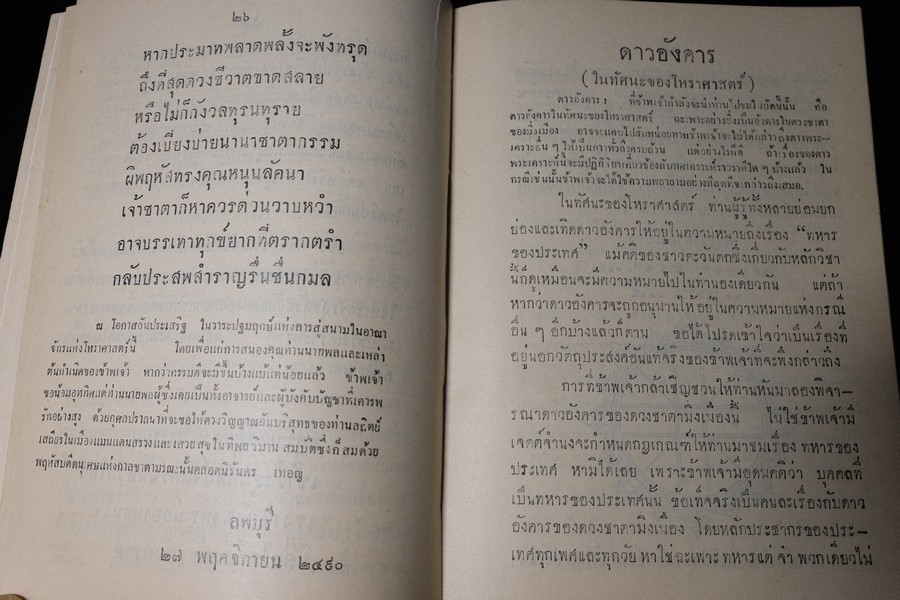 ๒๖
หากประมาทพลาดพลั้งจะพังทรุด
ถึงที่สุดดวงชีวาตขาดสลาย
หรือไม่ก็กังวลทุรนทุราย
ต้องเบี่ยงบ่ายนานาชาตากรรม
ผิพฤหัสทรงคุณหนุนลัคนา
เจ้าชาตาก็หาควรด่วนวาบหวำ
อาจบรรเทาทุกข์ยากที่ตรากตรำ
กลับประสพสำราญรื่นชื่นกมล
ณ โอกาสอันประเสริฐ ในวาระปฐมฤกษ์แห่งการสู่สนามในอาณา
จักรแห่งโหราศาสตร์นี้ โดยเพื่อแก่การสนองคุณท่านนายพลและเหล่า
ต้นกำเนิดของข้าพเจ้า หากว่ากรรมดีจะมีขึ้นบ้างแม้แต่น้อยแล้ว ข้าพเจ้า
ขอน้อมอุททิศแด่ท่านนายพลผู้ซึ่งเคยเป็นทั้งอาจารย์และผู้บังคับบัญชาที่เคารพ
รักอย่างสูง ด้วยกุศลปรารถนาที่จะขอให้ดวงวิญญาณอันบริสุทธของท่านสถิตย์
เสถียรในเมืองแมนแดนสรวงและเสวยสุขในทิพยวิมาน สมบัติซึ่งก็สมด้วย
พฤหัสบดีคุณูศมแห่งกาลชาตามรณะนั้นตลอดนิรันดร เทอญ
ลพบุรี
๒๗ พฤศจิกายน ๒๔๙๐
ดาวอังคาร
(ในทัศนะของโหราศาสตร์)
ดาวอังคาร! ที่ข้าพเจ้ากำลังจะนำท่านไปชมในบัดนี้นั้น คือ
ดาวอังคารในทัศนะของโหราศาสตร์ ฉะเพาะอย่างยิ่งเป็นอังคารในดวงชาตา
ของมิ่งเมือง อาจจะแคบไปสักหน่อยหากข้าพเจ้าจะไม่ได้กล่าวถึงดาวพระ--
เคราะห์อื่น ๆ ให้เป็นการทั่วถึงครบถ้วน แต่อย่างไรก็ดี ถ้าเรื่องของดาว
พระเคราะห์นี้จะมีปฏิกิริยาเกี่ยวข้องกับเทหะเคราะห์ดาราใด ๆ บ้างแล้ว ใน
กรณีเช่นนั้นข้าพเจ้าจะได้ใช้ความพยายามอย่างที่สุดที่จะกล่าวถึงเสมอ.
ในทัศนะของโหราศาสตร์ ท่านผู้รู้ทั้งหลายย่อมยก
ย่องและเทิดดาวอังคารให้อยู่ในความหมายถึงเรื่อง “ทหาร
ของประเทศ” แม้คติของชาวตะวันตกซึ่งเกี่ยวกับหลักวิชา
นี้ก็ดูเหมือนจะมีความหมายไปในทำนองเดียวกัน แต่ถ้า
หากว่าดาวอังคารจะถูกอนุมานให้อยู่ในความหมายแห่งกรณี
อื่น ๆ อีกบ้างแล้วก็ตาม ขอได้โปรดเข้าใจว่าเป็นเรื่องที่
อยู่นอกวัตถุประสงค์อันแท้จริงของข้าพเจ้าที่จะพึงกล่าวถึง
การที่ข้าพเจ้ากล้าเชิญชวนให้ท่านหันมาลองพิจา-
รณาดาวอังคารของดวงชาตามิ่งเมืองนี้ ไม่ใช่ข้าพเจ้ามี
เจตต์จำนงจะกำหนดกฎเกณฑ์ให้ท่านมาชมเรื่อง ทหารของ
ประเทศ หามิได้เลย เพราะข้าพเจ้ามีอุดมคติว่า บุคคลที่
เป็นทหารของประเทศนั้น ข้อเท็จจริงเป็นคนละเรื่องกับดาว
อังคารของดวงชาตามิ่งเมือง โดยหลักประชากรของประ-
เทศทุกเพศและทุกวัย หาใช่ฉะเพาะ ทหารแต่ จำ พวกเดียวไม่